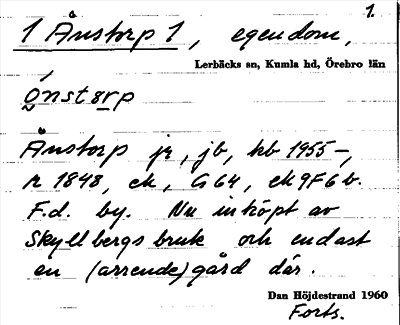 1.
1 Ånstorp 1, egendom,
Lerbäcks sn, Kumla hd, Örebro län
ǫ́nstørp
Ånstorp jr, jb, kb 1955–,
r 1848, ek, G64, ek 9F6b.
F.d. by. Nu inköpt av
Skyllbergs bruk och endast
en (arrende)gård där.
Dan Höjdestrand 1960
Forts.